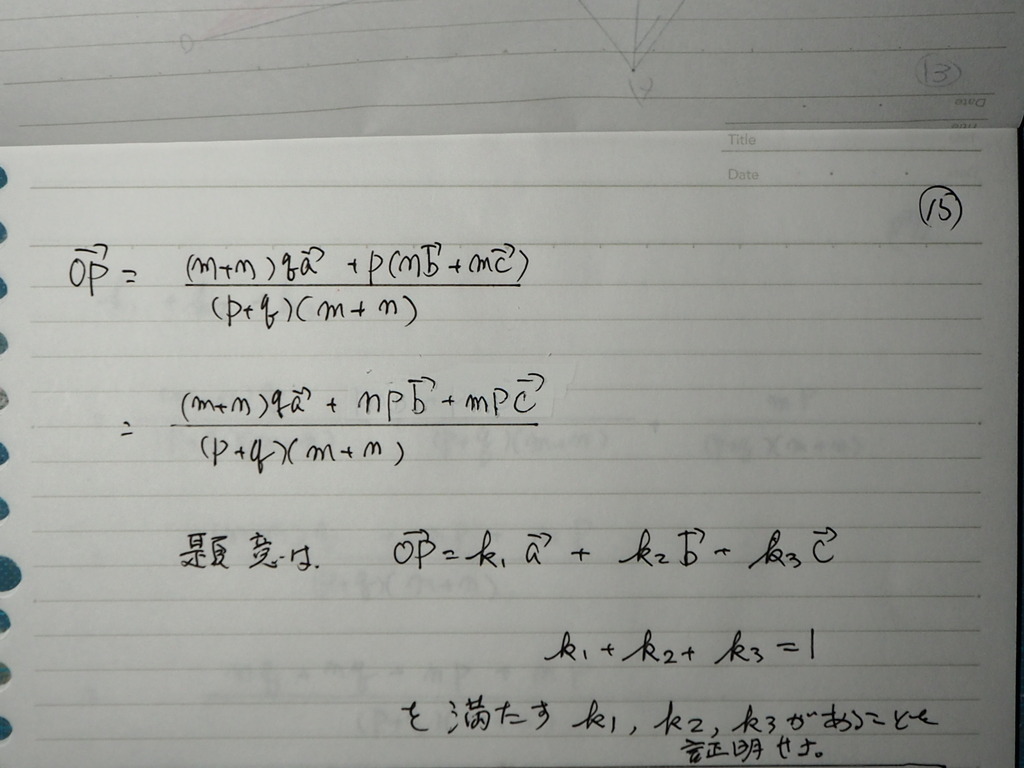 O
13
Date
Title
Title
Date
15
\vec{OP} = \frac{(m+n)q\vec{a} + p(n\vec{b} + m\vec{c})}{(p+q)(m+n)}
= \frac{(m+n)q\vec{a} + np\vec{b} + mp\vec{c}}{(p+q)(m+n)}
題意は. \vec{OP} = k_1\vec{a} + k_2\vec{b} + k_3\vec{c}
k_1 + k_2 + k_3 = 1
を満たす k_1, k_2, k_3 があることを
証明せよ。